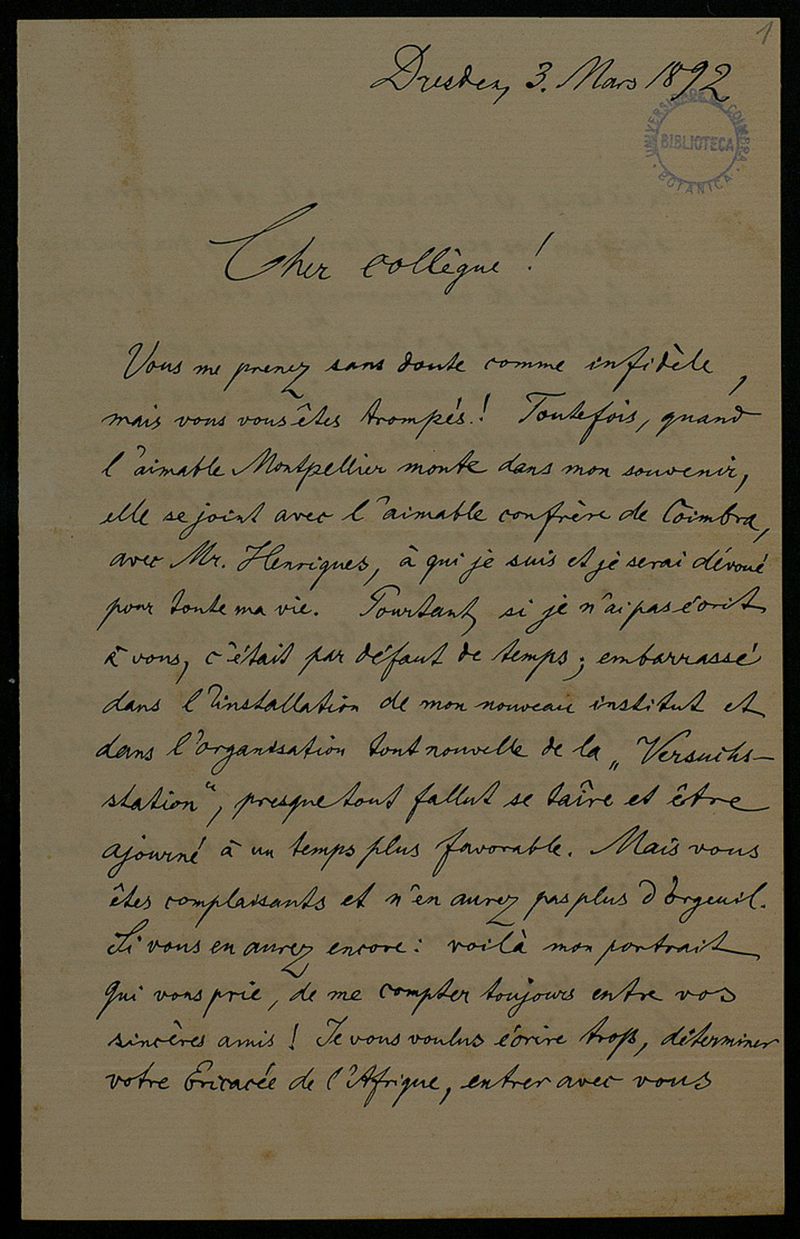 1
Dresden, 3. Mars 1892
UNIVERSIDADE DE COIMBRA
BIBLIOTECA
BOTANICA
Cher collègue !
Vous me prenez sans doute comme infidèle,
mais vous vous êtes trompés.! Toutefois, quand
l'aimable Montpellier monte dans mon souvenir,
elle se joint avec l'aimable confrère de Coimbra,
avec Mr. Henriques, à qui je suis et je serai dévoué
pour toute ma vie. Pourtant, si je n'ai pas écrit
à vous, c'était par défaut de temps; embarrassé
dans l'installation de mon nouveau institut et
dans l'organisation tout nouvelle de la „Versuchs-
station“, presque tout fallut se taîre et être
ajourné à un temps plus favorable. Mais vous
êtes complaisants et n'en aurez pas plus d'orgeuil.
Si vous en aurez encore: voilà mon portrait
qui vous prie, de me compter toujours entre vos
sincères amis! Je vous voulus écrire trop, déterminer
votre Ericacée de l'Afrique, entrer avec vous